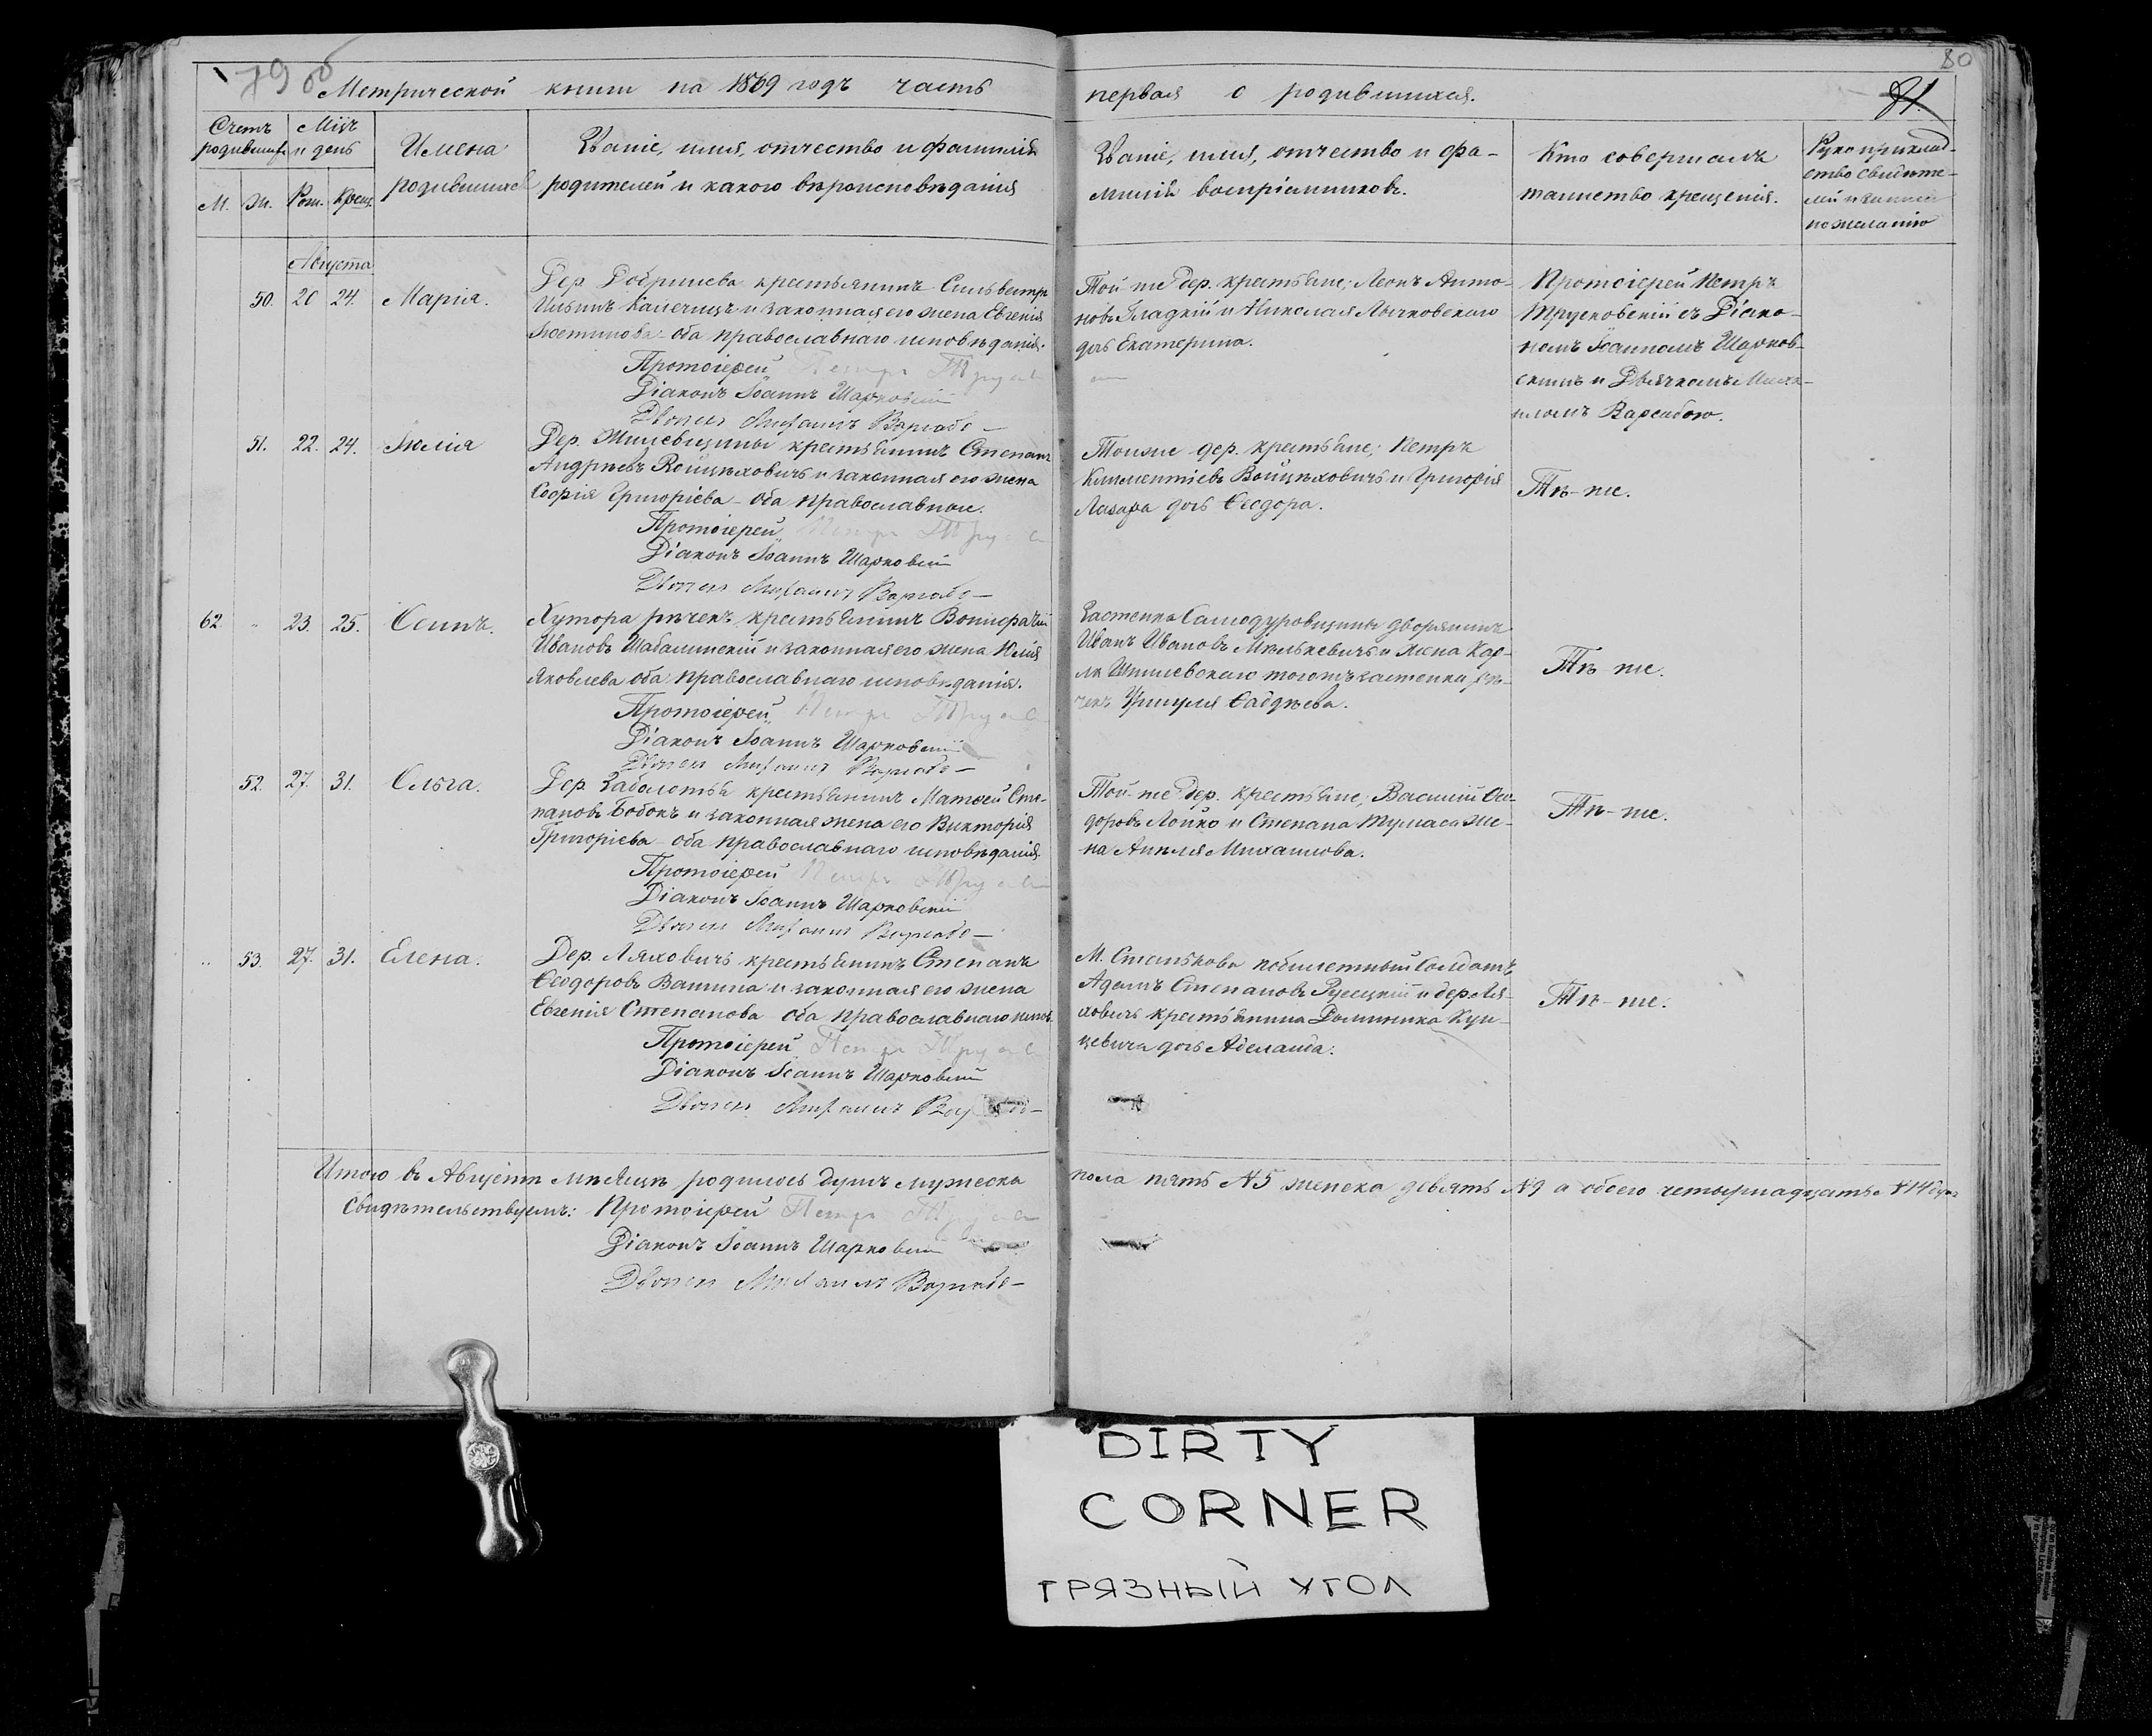 79 об
80
81
Метрической книги на 1869 годъ часть
первая о родившихся.
Счетъ родившихся
Мѣц. и день
М. Ж. Рож. Крещ.
Имена
родившихся
Званіе, имя, отчество и фамилія
родителей и какого вѣроисповѣданія
Званіе, имя, отчество и фа-
милія воспріемниковъ.
Кто совершалъ
таинство крещенія.
Рукоприклад-
ство свидѣте-
лей
по желанію
Августа
50. 20 24. Марія.
Дер. крестьянинъ Сильвестръ
Ильинъ и законная его жена Евгенія
Іюстинова - оба православнаго исповѣданія.
Протоіерей Петръ
Діаконъ Іоаннъ Шарковскій
Дьячекъ Михаилъ
Той-же дер. крестьяне; Леонъ Анто-
новъ Гладкій и Николая
дочь Екатерина.
Протоіерей Петръ
съ Діако-
номъ Іоанномъ Шарков-
скимъ и Дьячкомъ Миха-
иломъ
51. 22. 24. Юлія
Дер. крестьянинъ Степанъ
Андреевъ Войцѣховичъ и законная его жена
Софія Григоріева - оба православные.
Протоіерей Петръ
Діаконъ Іоаннъ Шарковскій
Дьячекъ Михаилъ
Тойже дер. крестьяне; Петръ
Климентіевъ Войцѣховичъ и Григорія
Лазара дочь Ѳеодора.
Тѣ-же.
62. " 23. 25. Осипъ.
Хутора рѣчекъ крестьянинъ Вонифатій
Ивановъ Шабалинскій и законная его жена Юлія
Яковлева оба православнаго исповѣданія.
Протоіерей Петръ
Діаконъ Іоаннъ Шарковскій
Дьячекъ Михаилъ
Застенка Самодуровщины дворянинъ
Иванъ Ивановъ и жена Кар-
ла тогожъ застенка рѣ-
чекъ
Тѣ-же.
52. 27. 31. Ольга.
Дер. Заболотья крестьянинъ Матѳей Сте-
пановъ Бобокъ и законная жена его Викторія
Григоріева - оба православнаго исповѣданія.
Протоіерей Петръ
Діаконъ Іоаннъ Шарковскій
Дьячекъ Михаилъ
Той-же дер. крестьяне; Василій Ѳео-
доровъ Лойко и Степана Тумаса же-
на Анеля Михаилова.
Тѣ-же.
" 53. 27. 31. Елена.
Дер. Ляховичъ крестьянинъ Степанъ
Ѳеодоровъ и законная его жена
Евгенія Степанова оба православнаго испов.
Протоіерей Петръ
Діаконъ Іоаннъ Шарковскій
Дьячекъ Михаилъ
М. Столькова побилетный солдатъ
Адамъ Степановъ Русецкій и дер. Ля-
ховичъ крестьянина Доминика Куп-
цевича дочь Аделаида.
Тѣ-же.
Итого въ Августѣ мѣсяцѣ родилось душъ мужеска
пола пять №5 женска девять №9 а обоего четырнадцать №14
Свидѣтельствуемъ: Протоіерей Петръ
Діаконъ Іоаннъ Шарковскій
Дьячекъ Михаилъ
DIRTY
CORNER
ГРЯЗНЫЙ УГОЛ